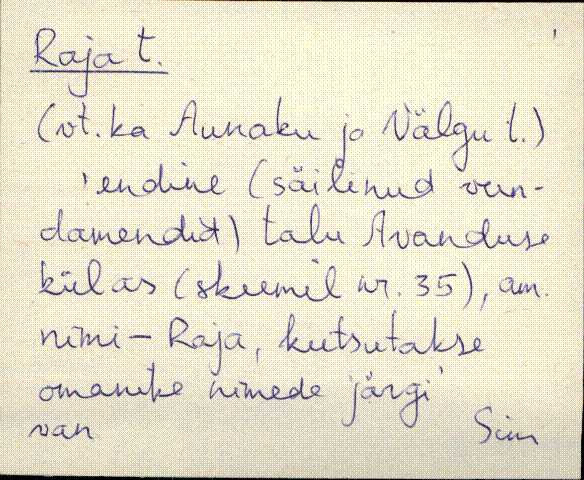 Raja t.
(vt. ka Aunaku ja Välgu t.)
'endine (säilinud vun-
damendid) talu Avanduse
külas (skeemil nr. 35), am.
nimi – Raja, kutsutakse
omanike nimede järgi'
van Sim